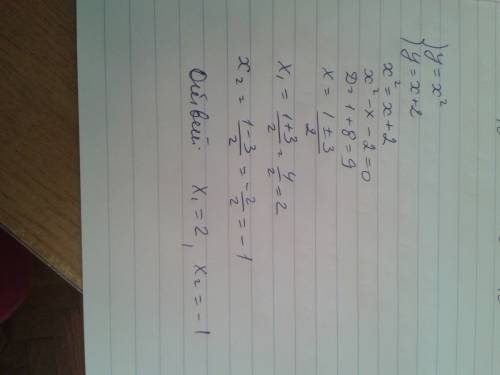 { y = x²
{ y = x+2
x² = x+2
x² - x - 2 = 0
D = 1 + 8 = 9
x = (1 ± 3)/2
x₁ = (1+3)/2 = 4/2 = 2
x₂ = (1-3)/2 = -2/2 = -1
Ответ: x₁ = 2, x₂ = -1